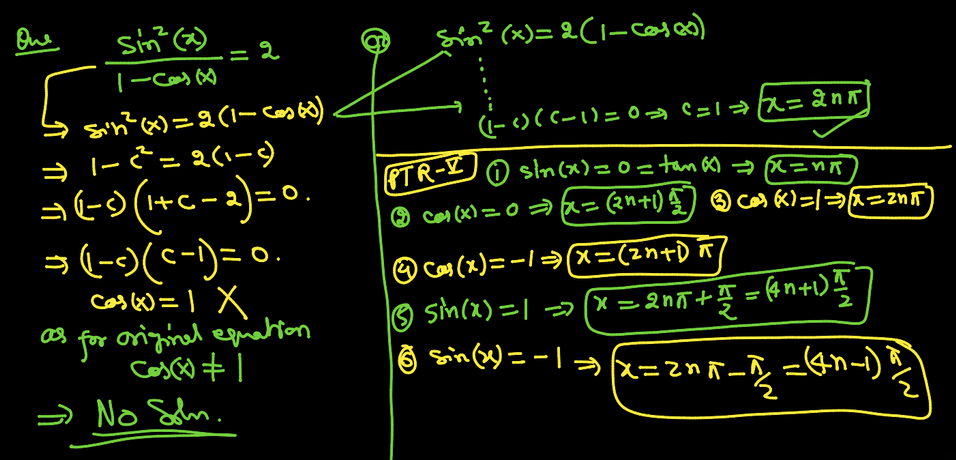 Que sin²(x)/(1-cos(x)) = 2
⇒ sin²(x) = 2(1-cos(x))
⇒ 1-c² = 2(1-c)
⇒ (1-c)(1+c-2) = 0.
⇒ (1-c)(c-1) = 0.
cos(x) = 1 X
as for original equation
cos(x) ≠ 1
⇒ No Soln.
sin²(x) = 2(1-cos(x))
(1-c)(c-1) = 0 ⇒ c = 1 ⇒ x = 2nπ ✓
PTR-V ① sin(x) = 0 = tan(x) ⇒ x = nπ
② cos(x) = 0 ⇒ x = (2n+1)π/2 ③ cos(x) = 1 ⇒ x = 2nπ
④ cos(x) = -1 ⇒ x = (2n+1)π
⑤ sin(x) = 1 ⇒ x = 2nπ + π/2 = (4n+1)π/2
⑥ sin(x) = -1 ⇒ x = 2nπ - π/2 = (4n-1)π/2